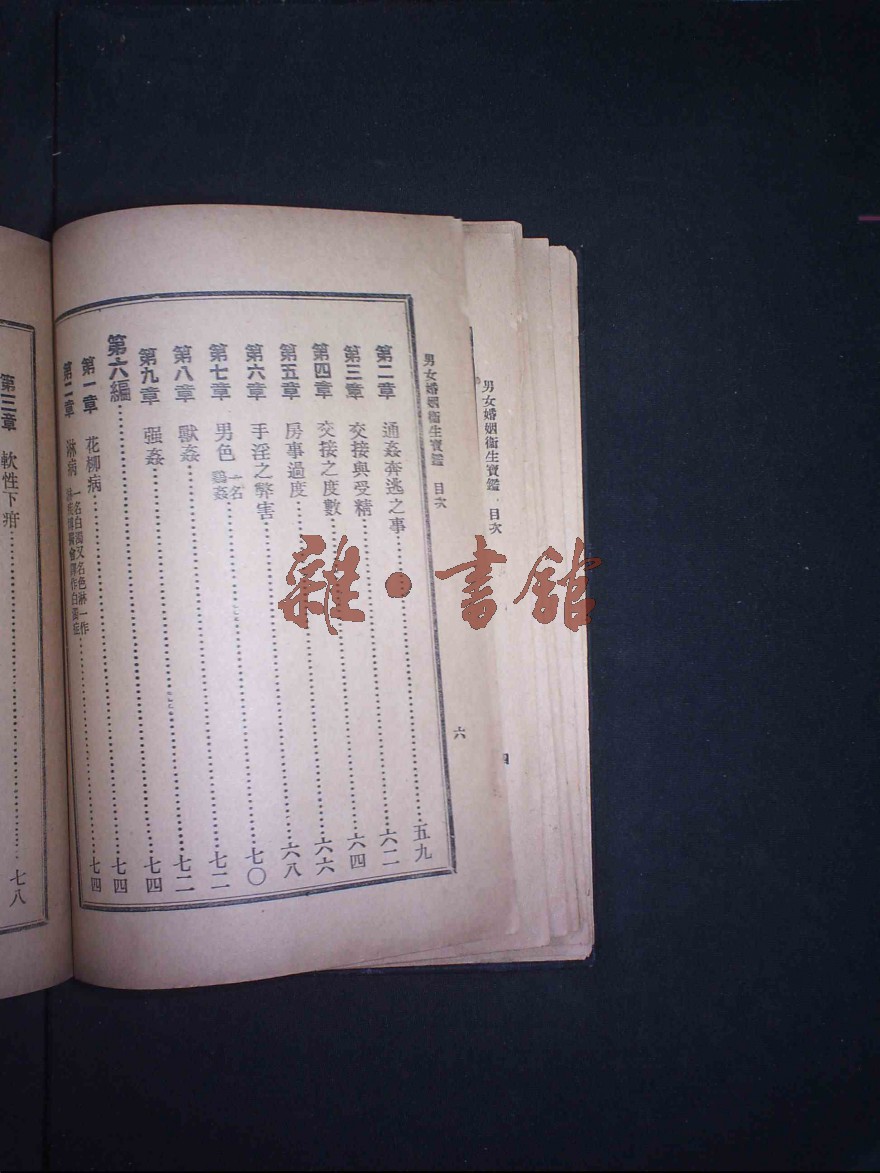 男女婚姻衞生寶鑑 目次
四
男女婚姻衞生寶鑑 目次 六
第二章 通姦奔逃之事……五九
第三章 交接與受精……六二
第四章 交接之度數……六四
第五章 房事過度……六六
第六章 手淫之弊害……六八
第七章 男色 一名鷄姦……七〇
第八章 獸姦……七二
第九章 强姦……七二
第六編……七四
第一章 花柳病……七四
第二章 淋病 一名白濁又名色淋一作……七四
第三章 軟性下疳……七八
雜·書館